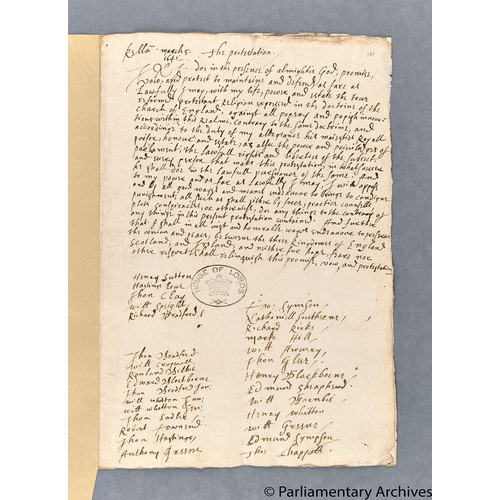 Kellā March 5 The protestation.
1641
I A B doe in the presence of almightie God, promise,
vow, and protest to maintaine and defend as farr as
Lawfully I may, with my life, power and estate the true
reformed protestant religion expressed in the doctrine of the
Church of England, against all popery and popish innova
tions within this Realme, contrary to the same doctrine, and
according to the duty of my allegiance his maiesties Royall
person, honour and estate, as also the power and priviledges of
parliament, the lawfull rights and liberties of the subiect,
and every person that maketh this protestation, in
he shall doe in the lawfull pursuance of the same: And
to my power and as far as lawfully I may, I will oppose
and by all good wayes and meanes endeavour to bring to condigne
punishment, all such as shall either by force, practice, counsells
plots conspiracies or otherwise, doe any things to the contrary of
any things in this present protestation contained. And further
that I shall in all iust and honorable wayes endeavour to preserve
the union and peace, betweene the three kingdomes of England
Scotland, and Ireland, and neither for hope, feare nor
other respect shall relinquish this promise, vow, and protestation
HOUSE OF LORDS
Henry Sutton
Hastings
Thon Clay
will Speight
Richard Bradford
Thon Bradford
will
Rowland
Edward Blackborne
Thon Bradford Iun:
will whetton Iun:
will whetton Sen:
Thon Sadler
Robert Townend
Thon Hastings
Anthony Greene
Ino: Cympson
Richard Kirke
marke Hill
will
Thon
Henry Blackborne
Edmund Shepheard
will
Henry Whetton
will Greene
Edmund Cympson
Chappell
© Parliamentary Archives